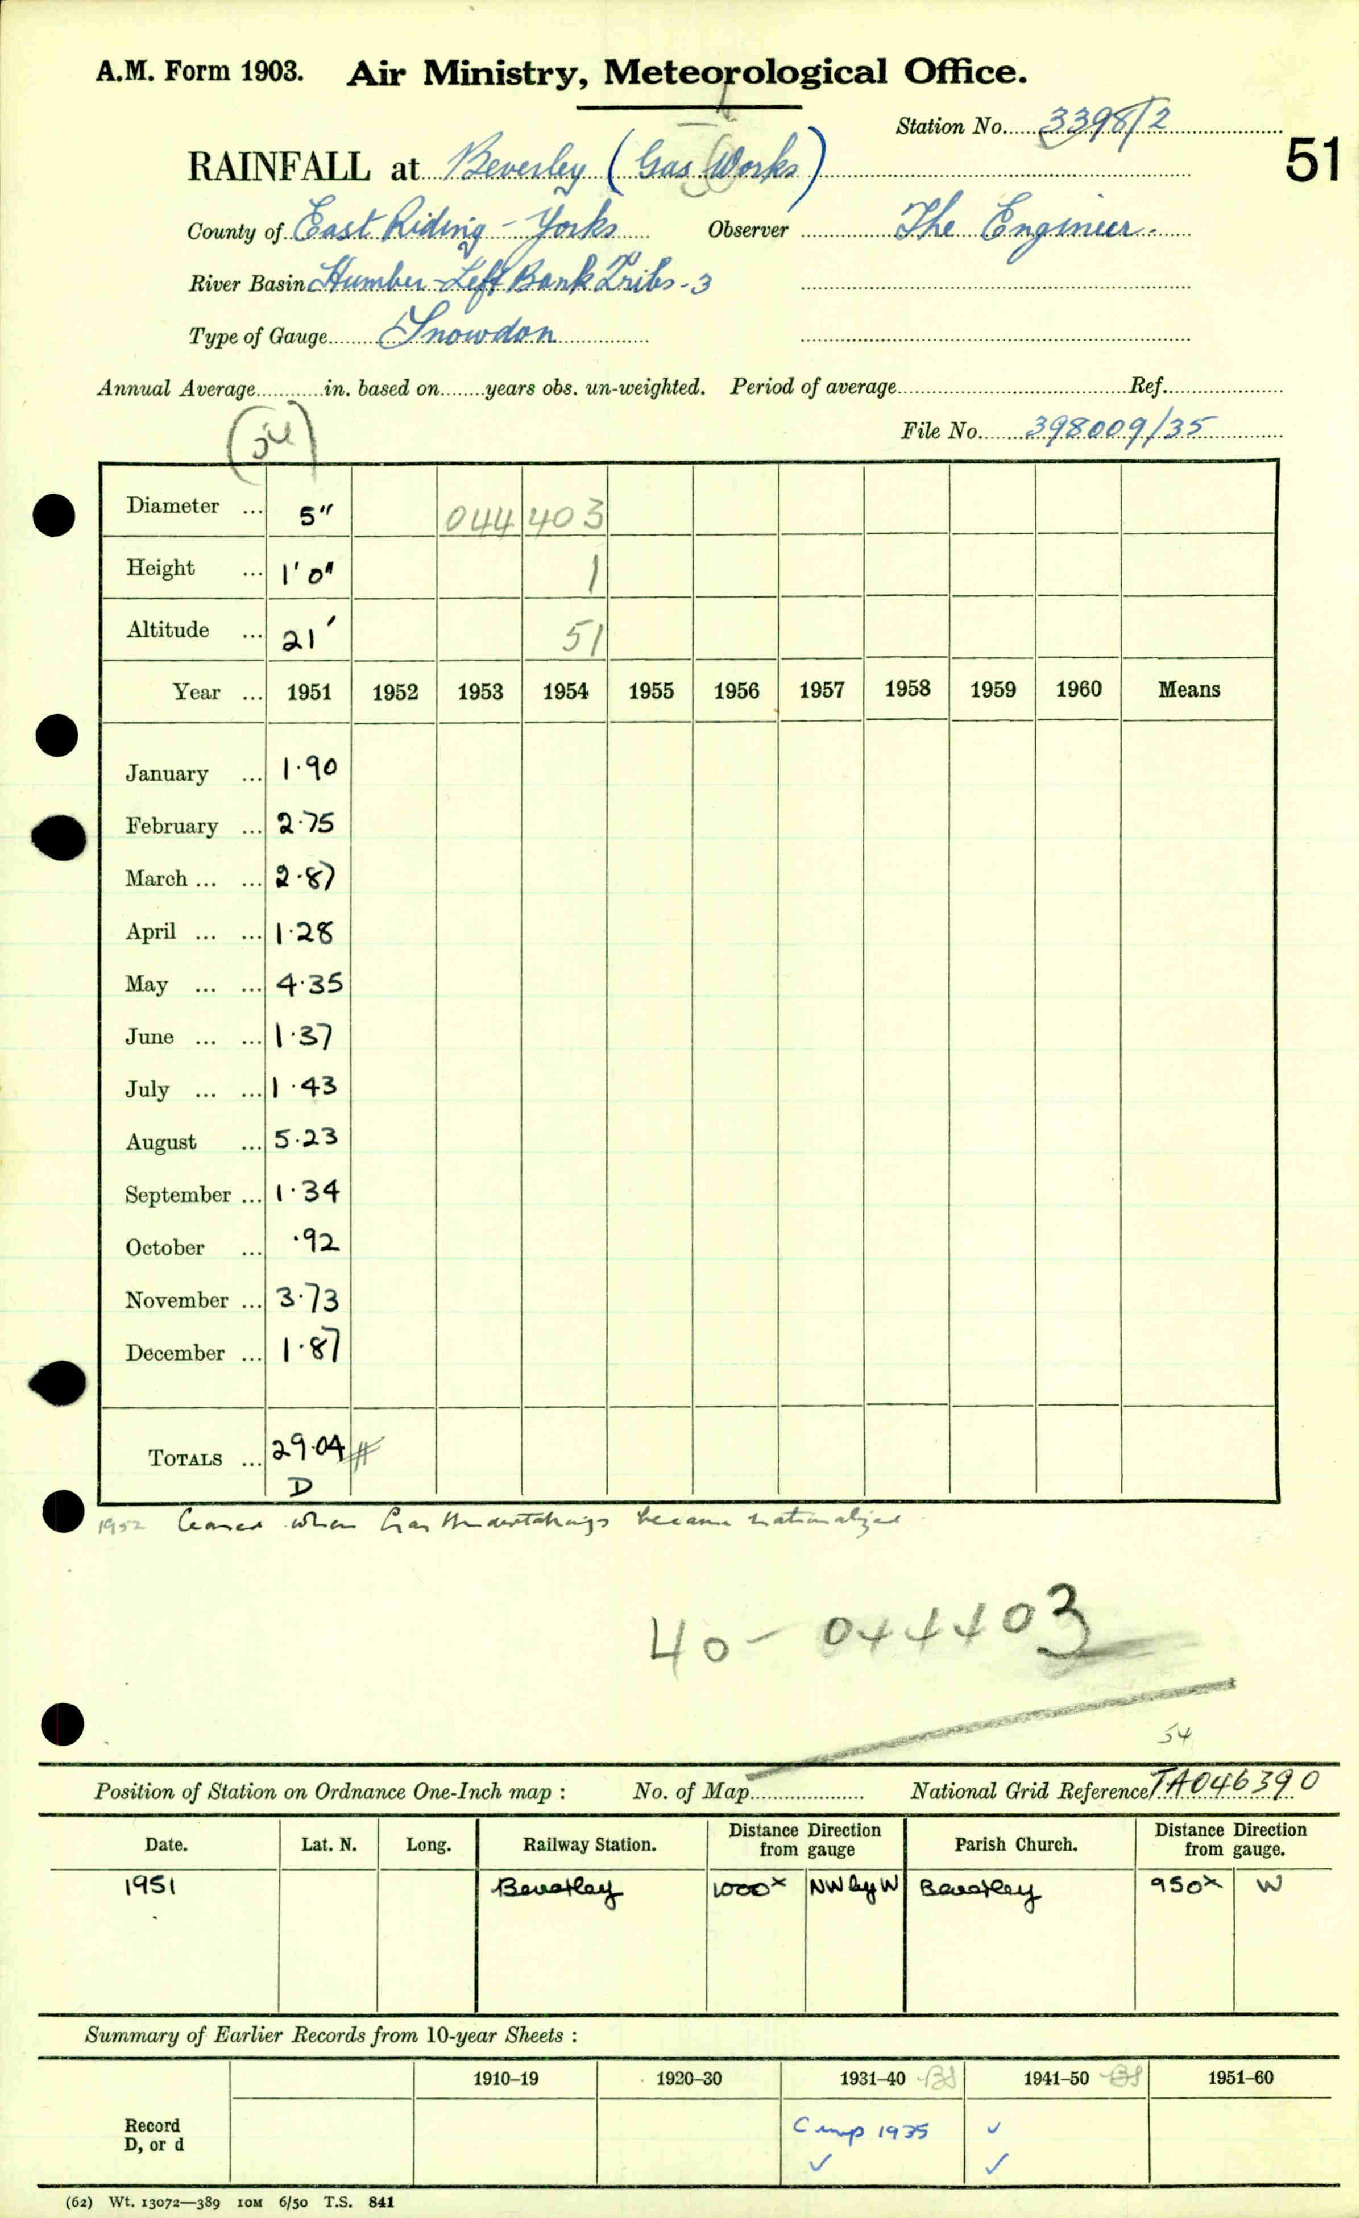 A.M. Form 1903. Air Ministry, Meteorological Office.
Station No. 3398/2
51
RAINFALL at Beverley (Gas Works)
County of East Riding - Yorks Observer The Engineer.
River Basin Humber-Left Bank Tribs-3
Type of Gauge Snowdon
Annual Average in. based on years obs. un-weighted. Period of average Ref.
File No. 398009/35
Diameter ... 5" 044 403
Height ... 1' 0" 1
Altitude ... 21' 51
Year ... 1951 1952 1953 1954 1955 1956 1957 1958 1959 1960 Means
January ... 1·90
February ... 2·75
March ... ... 2·87
April ... ... 1·28
May ... ... 4·35
June ... ... 1·37
July ... ... 1·43
August ... 5·23
September ... 1·34
October ... ·92
November ... 3·73
December ... 1·87
TOTALS ... 29·04 #
D
1952 Ceased when Gas Undertakings became nationalized
40 - 044403
54
Position of Station on Ordnance One-Inch map : No. of Map National Grid Reference TA046390
Date. Lat. N. Long. Railway Station. Distance Direction from gauge Parish Church. Distance Direction from gauge.
1951 Beverley 1000x NW by W Beverley 950x W
Summary of Earlier Records from 10-year Sheets :
1910–19 1920–30 1931–40 1941–50 1951–60
Record D, or d Cmp 1935 ✓
✓ ✓
(62) Wt. 13072—389 10M 6/50 T.S. 841